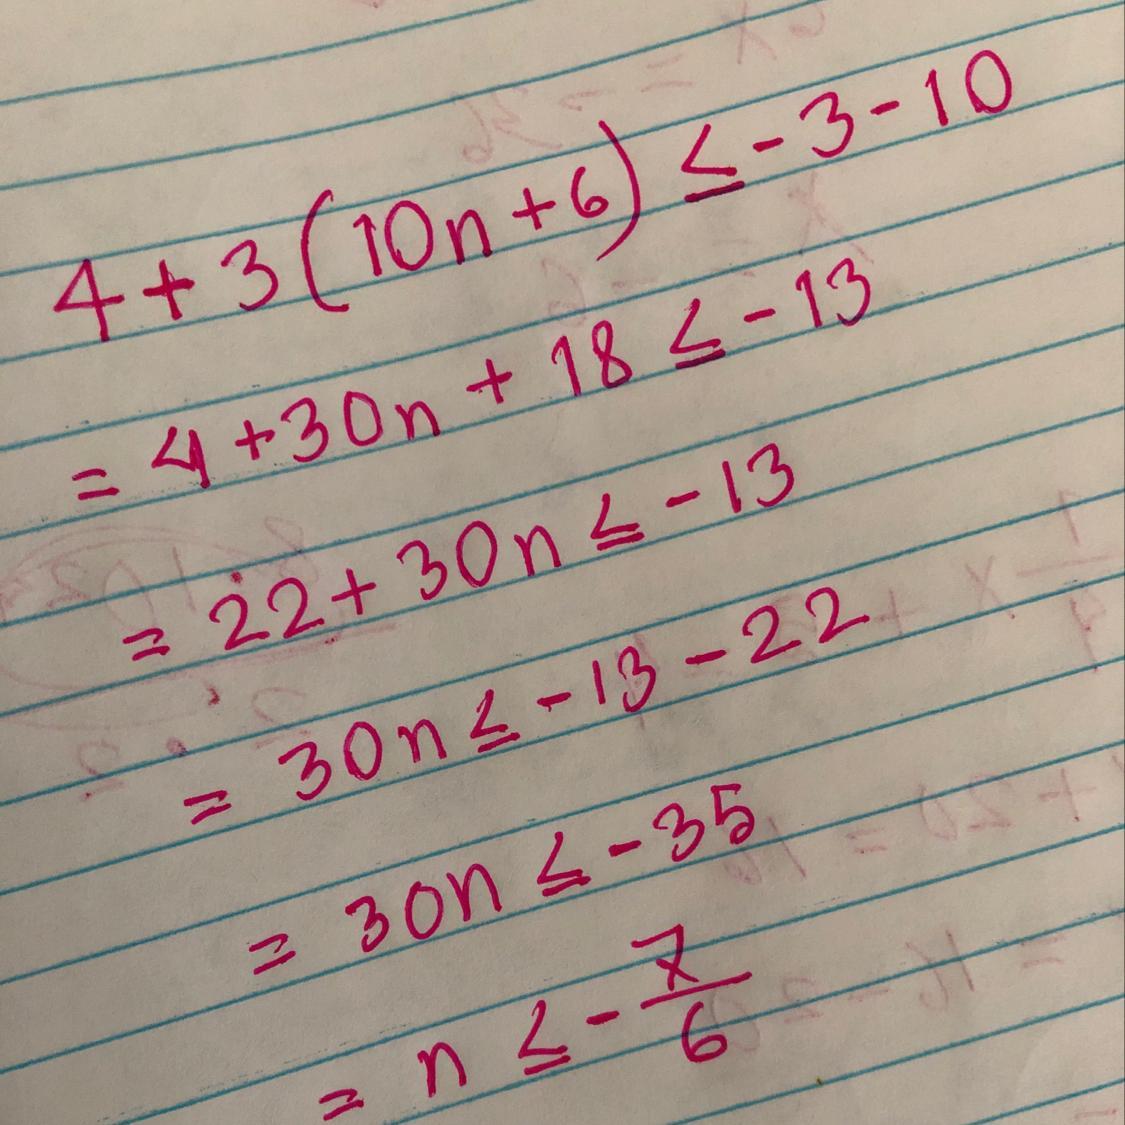 4 + 3 (10n + 6) ≤ - 3 - 10
= 4 + 30n + 18 ≤ - 13
= 22 + 30n ≤ - 13
= 30n ≤ - 13 - 22
= 30n ≤ - 35
= n ≤ - 7/6